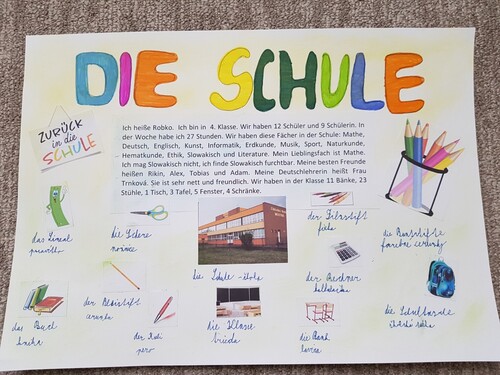 DIE SCHULE
ZURÜCK
in die
SCHULE
Ich heiße Robko. Ich bin in 4. Klasse. Wir haben 12 Schüler und 9 Schülerin. In
der Woche habe ich 27 Stunden. Wir haben diese Fächer in der Schule: Mathe,
Deutsch, Englisch, Kunst, Informatik, Erdkunde, Musik, Sport, Naturkunde,
Hematkunde, Ethik, Slowakisch und Literature. Mein Lieblingsfach ist Mathe.
Ich mag Slowakisch nicht, ich finde Slowakisch furchtbar. Meine besten Freunde
heißen Rikin, Alex, Tobias und Adam. Meine Deutschlehrerin heißt Frau
Trnková. Sie ist sehr nett und freundlich. Wir haben in der Klasse 11 Bänke, 23
Stühle, 1 Tisch, 3 Tafel, 5 Fenster, 4 Schränke.
das Lineal
pravítko
die Schere
nožnice
die Schule - škola
der Filzstift
fixka
die Buntstifte
farebné ceruzky
der Rechner
kalkulačka
das Buch
kniha
der Bleistift
ceruzka
der Kuli
pero
die Klasse
trieda
die Bank
lavica
die Schultasche
školská taška